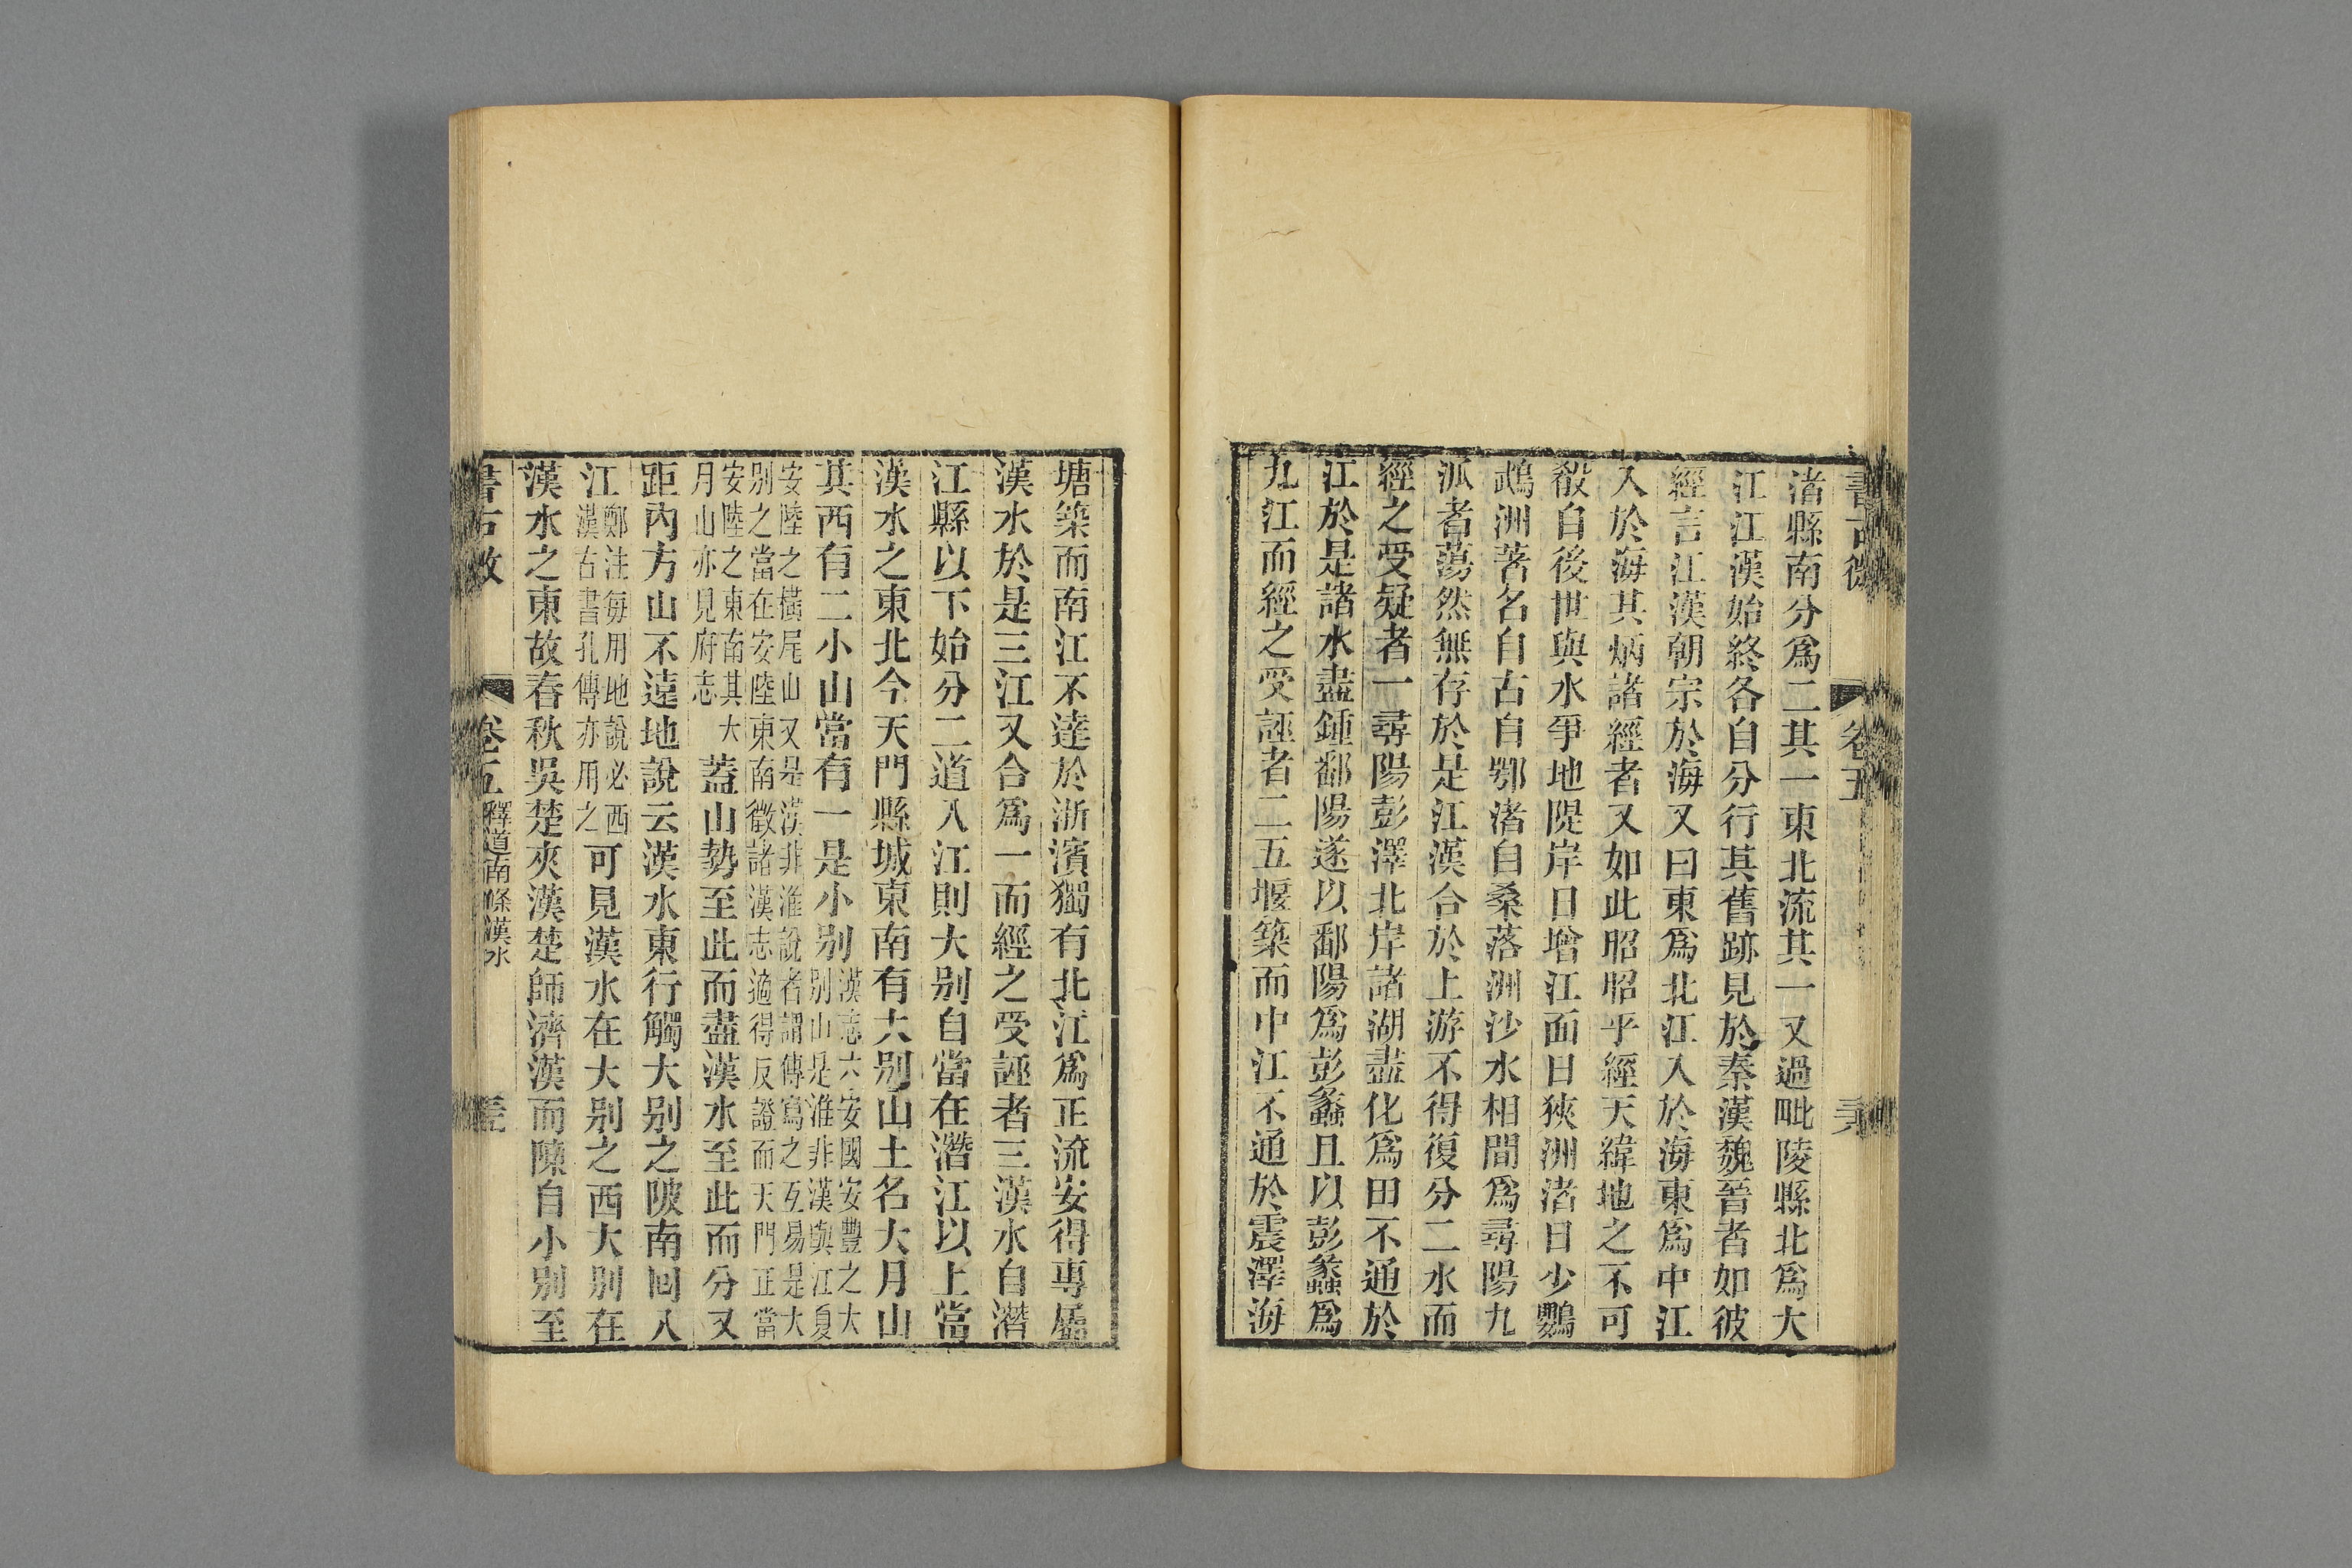 書古微
卷五
渚縣南分爲二其一東北流其一又過毗陵縣北爲大
江江漢始終各自分行其舊跡見於秦漢魏晉者如彼
經言江漢朝宗於海又曰東爲北江入於海東爲中江
入於海其炳諸經者又如此昭昭乎經天緯地之不可
殽自後世與水爭地隄岸日增江面日狹洲渚日少鸚
鵡洲著名自古自鄂渚自桑落洲沙水相間爲尋陽九
派者蕩然無存於是江漢合於上游不得復分二水而
經之受疑者一尋陽彭澤北岸諸湖盡化爲田不通於
江於是諸水盡鍾鄱陽遂以鄱陽爲彭蠡且以彭蠡爲
九江而經之受誣者二五堰築而中江不通於震澤海
塘築而南江不達於浙濱獨有北江爲正流安得專屬
漢水於是三江又合爲一而經之受誣者三漢水自潛
江縣以下始分二道入江則大别自當在潛江以上當
漢水之東北今天門縣城東南有大别山土名大月山
其西有二小山當有一是小别漢志六安國安豐之大
别山是淮非漢與江夏
安陸之橫尾山又是漢非淮說者謂傳寫之互易是大
别之當在安陸東南徵諸漢志適得反證而天門正當
安陸之東南其大
月山亦見府志蓋山勢至此而盡漢水至此而分又
距內方山不遠地說云漢水東行觸大别之陂南回入
江鄭注每用地說必西
漢古書孔傳亦用之可見漢水在大别之西大别在
漢水之東故春秋吳楚夾漢楚師濟漢而陳自小别至
書古微
卷五
釋道南條漢水